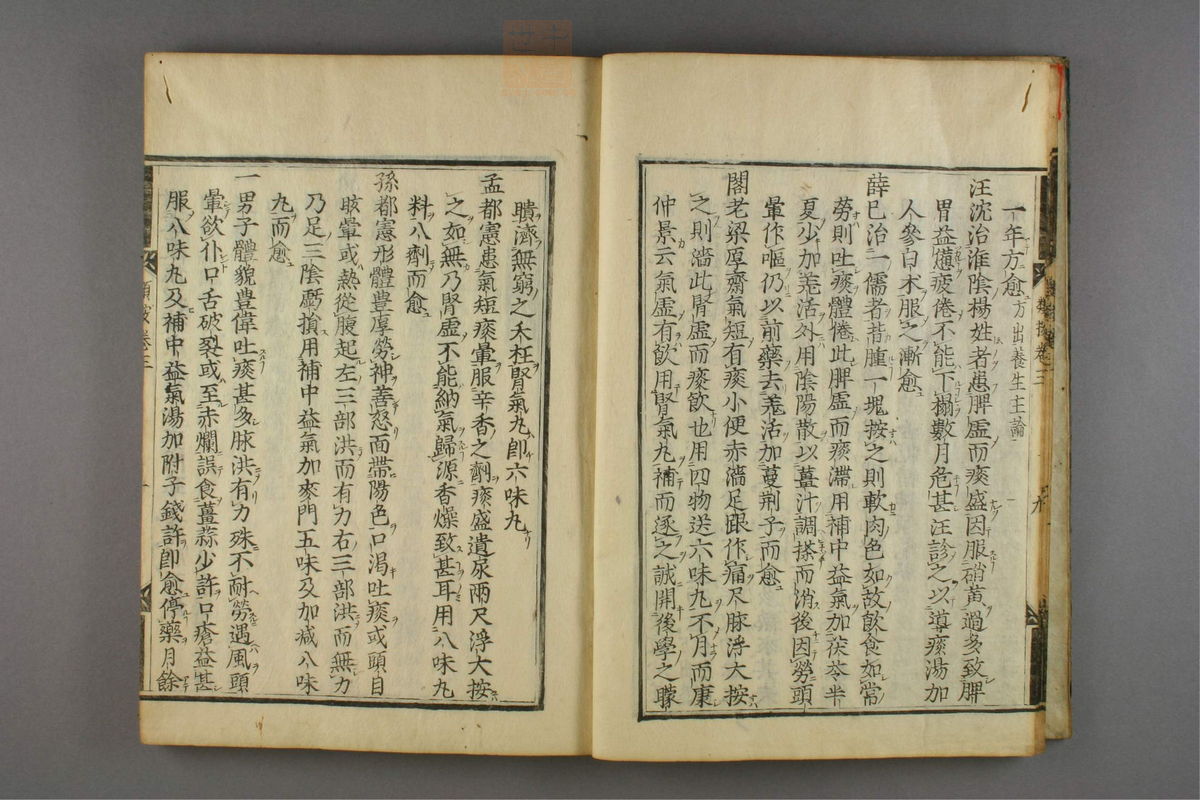 一年方愈方出養生主論
汪沈治淮陰楊姓者患脾虛而痰盛因服硝黃過多致脾
胃益憊疲倦不能下榻數月危甚汪診之以導痰湯加
人參白朮服之漸愈
薛已治一儒者背腫一塊按之則軟肉色如故飲食如常
勞則吐痰體倦此脾虛而痰滯用補中益氣加茯苓半
夏少加羗活外用陰陽散以薑汁調搽而消後因勞頭
暈作嘔仍以前藥去羗活加蔓荆子而愈
閣老梁厚齋氣短有痰小便赤濇足跟作痛尺脉浮大按
之則濇此腎虛而痰飲也用四物送六味丸不月而康
仲景云氣虛有飲用腎氣丸補而逐之誠開後學之矇
聵濟無窮之夭枉腎氣丸即六味丸
孟都憲患氣短痰暈服辛香之劑痰盛遺尿兩尺浮大按
之如無乃腎虛不能納氣歸源香燥致甚耳用八味丸
料八劑而愈
孫都憲形體豊厚勞神善怒面帶陽色口渴吐痰或頭目
眩暈或熱從腹起左三部洪而有力右三部洪而無力
乃足三陰虧損用補中益氣加麥門五味及加减八味
丸而愈
一男子體貌豊偉吐痰甚多脉洪有力殊不耐勞遇風頭
暈欲仆口舌破裂或至赤爛誤食薑蒜少許口瘡益甚
服八味丸及補中益氣湯加附子錢許即愈停藥月餘